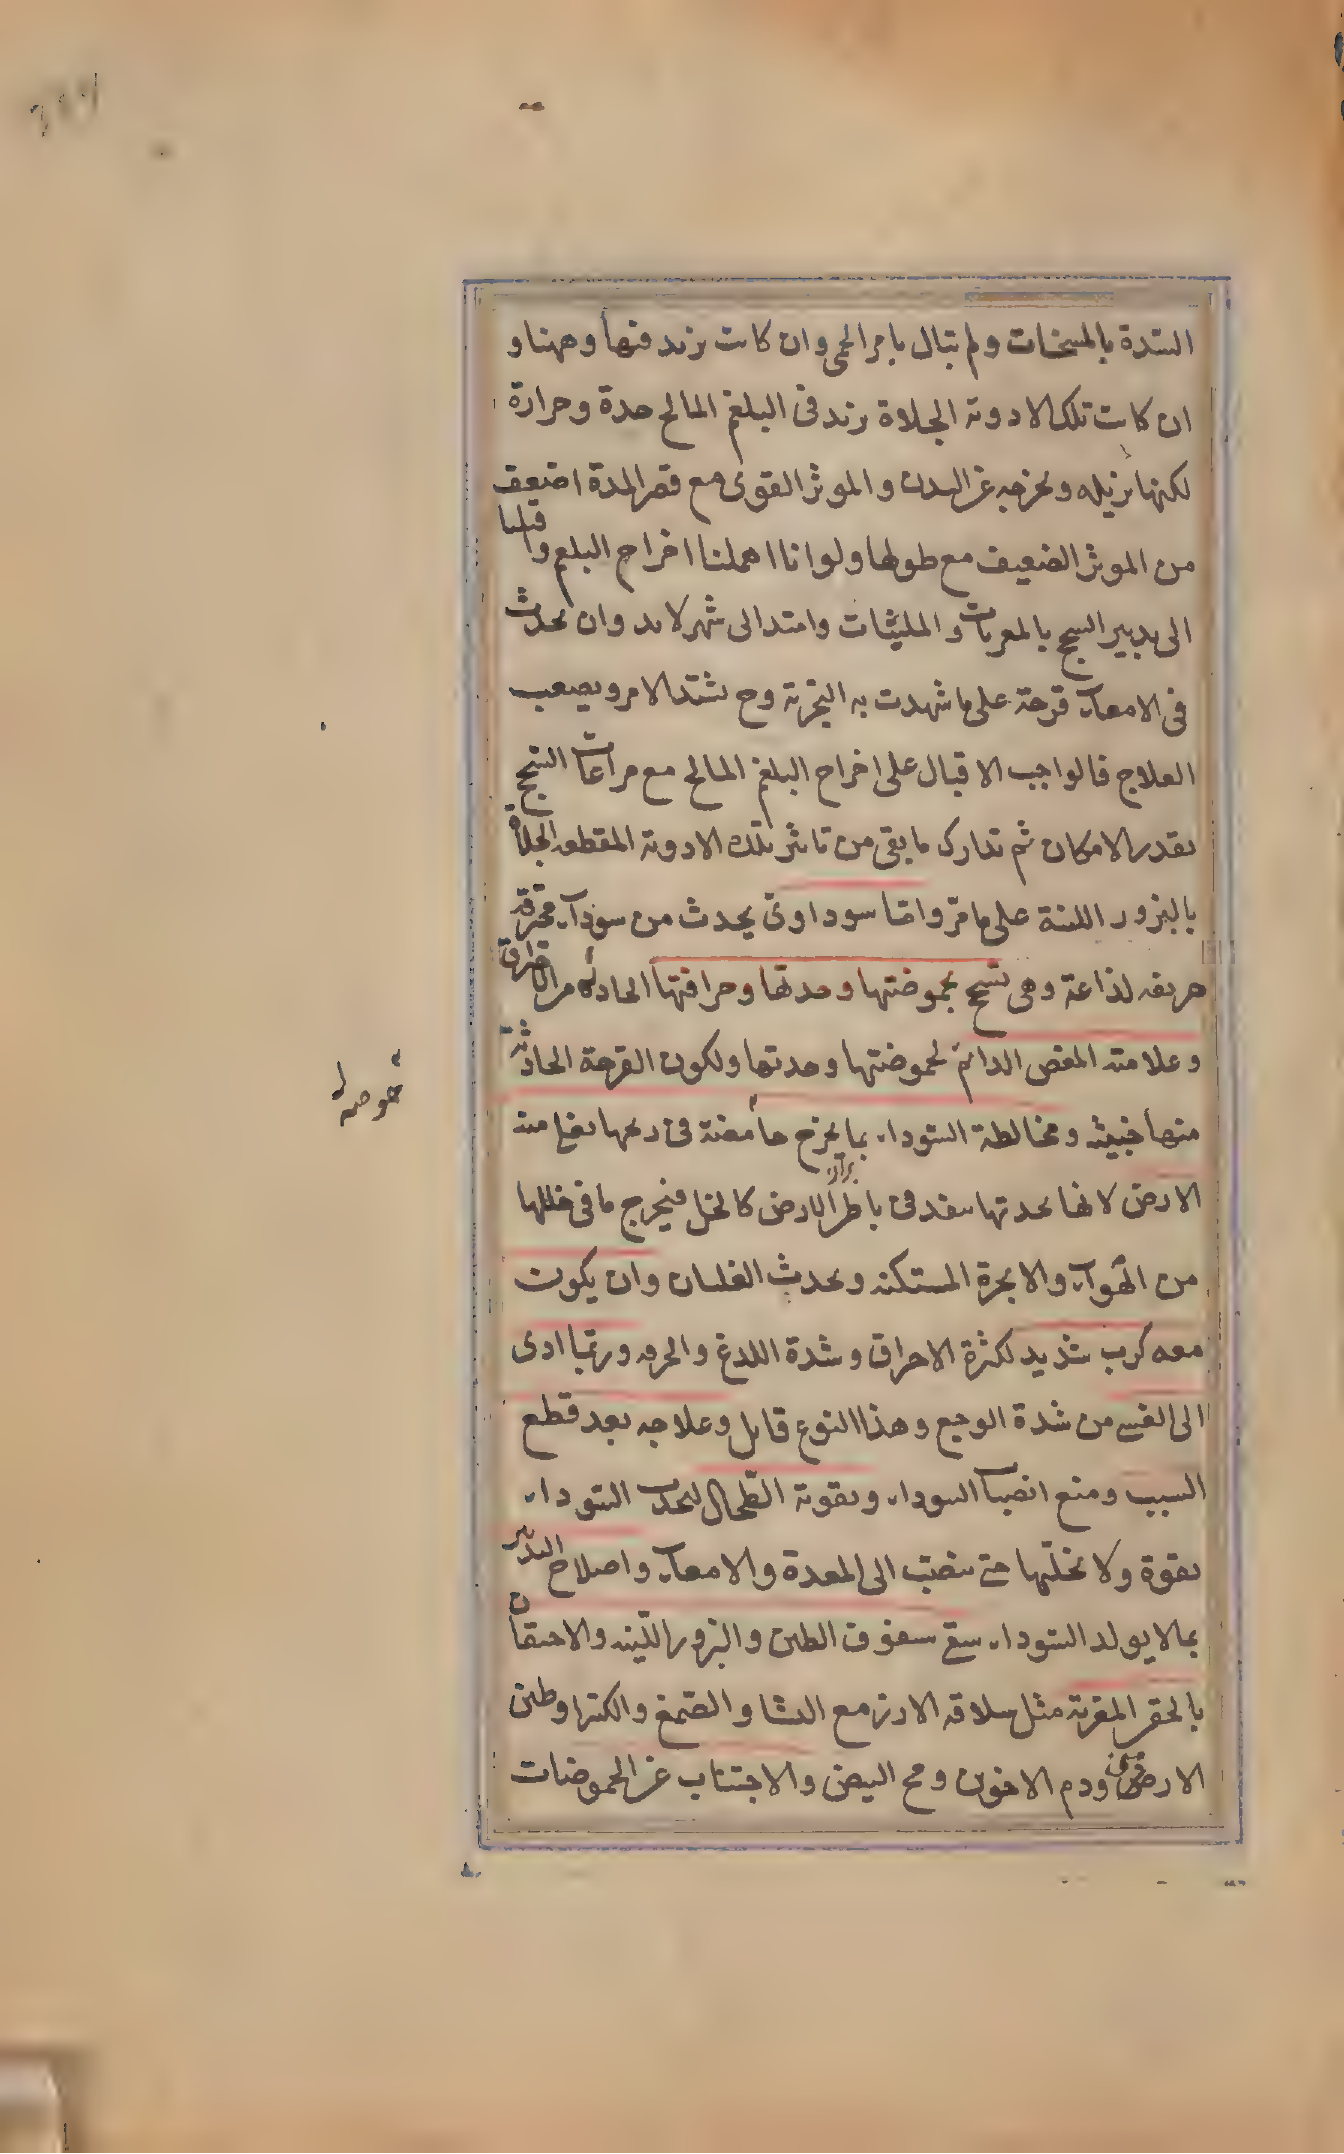 السدة بالمسخنات ولم تبال بامر الحمى وان كانت تزيد فيها وههنا و
ان كانت تلك الادوية الجلاءة تزيد فى البلغم المالح حدة وحرارة
لكنها تزيله وتخرجه عن البدن والموثر القوى مع قصر المدة اضعف
من الموثر الضعيف مع طولها ولو انا اهملنا اخراج البلغم واقبلنا
الى تدبير السحج بالمغريات والملينات وامتد الى شهر لابد وان يحدث
فى الامعاء قرحة على ما شهدت به التجربة وح يشتد الامر ويصعب
العلاج فالواجب الاقبال على اخراج البلغم المالح مع مراعات السحج
بقدر الامكان ثم تدارك ما بقى من تاثير تلك الادوية المقطعة الجلاءة
بالبزور اللينة على ما مر واما سوداوى يحدث من سوداء محترقة
حريفه لذاعة وهى تسحج بحموضتها وحدتها وحرافتها الحادثة من الاحتراق
وعلامته المغص الدائم لحموضتها وحدتها ولكون القرحة الحادثة
منها خبيثه ومخالطة السوداء بما يخرج حامضة فى ريحها يغلى منه
الارض لانها بحدتها تنفذ فى باطن الارض كالخل فيخرج ما فى خللها
من الهواء والابخرة المستكنه ويحدث الغليان وان يكون
معه كرب شديد لكثرة الاحراق وشدة اللدغ والحرقه وربما ادى
الى الغشى من شدة الوجع وهذا النوع قاتل وعلاجه بعد قطع
السبب ومنع انصباب السوداء وتقوية الطحال ليجذب السوداء
بقوة ولا يخليها حتى تنصب الى المعدة والامعاء واصلاح التدبير
بما لا يولد السوداء سقى سفوف الطين والبزور اللينه والاحتقان
بالحقن المغرية مثل سلاقه الارز مع النشا والصمغ والكثيرا وطين
الارمنى ودم الاخوين ومح البيض والاجتناب عن الحموضات